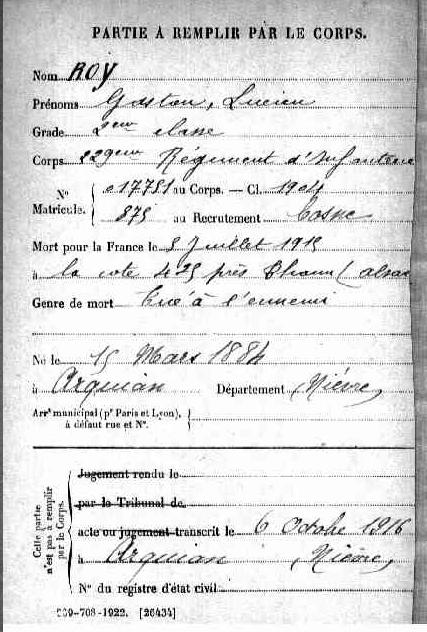 PARTIE A REMPLIR PAR LE CORPS.
Nom ROY
Prénoms Gaston, Lucien
Grade 2eme classe
Corps 229eme Régiment d'Infanterie
No Matricule. 017751 au Corps. — Cl. 1904
875 au Recrutement Cosne
Mort pour la France le 5 Juillet 1915
à la cote 425 près Thann (alsace
Genre de mort Tué à l'ennemi
Né le 15 Mars 1884
à Arquian Département Nièvre
Arrt municipal (pr Paris et Lyon), à défaut rue et No.
Cette partie n'est pas à remplir par le Corps.
Jugement rendu le
par le Tribunal de
acte ou jugement transcrit le 6 Octobre 1916
à Arquian Nièvre
No du registre d'état civil
-708-1922. [26434]